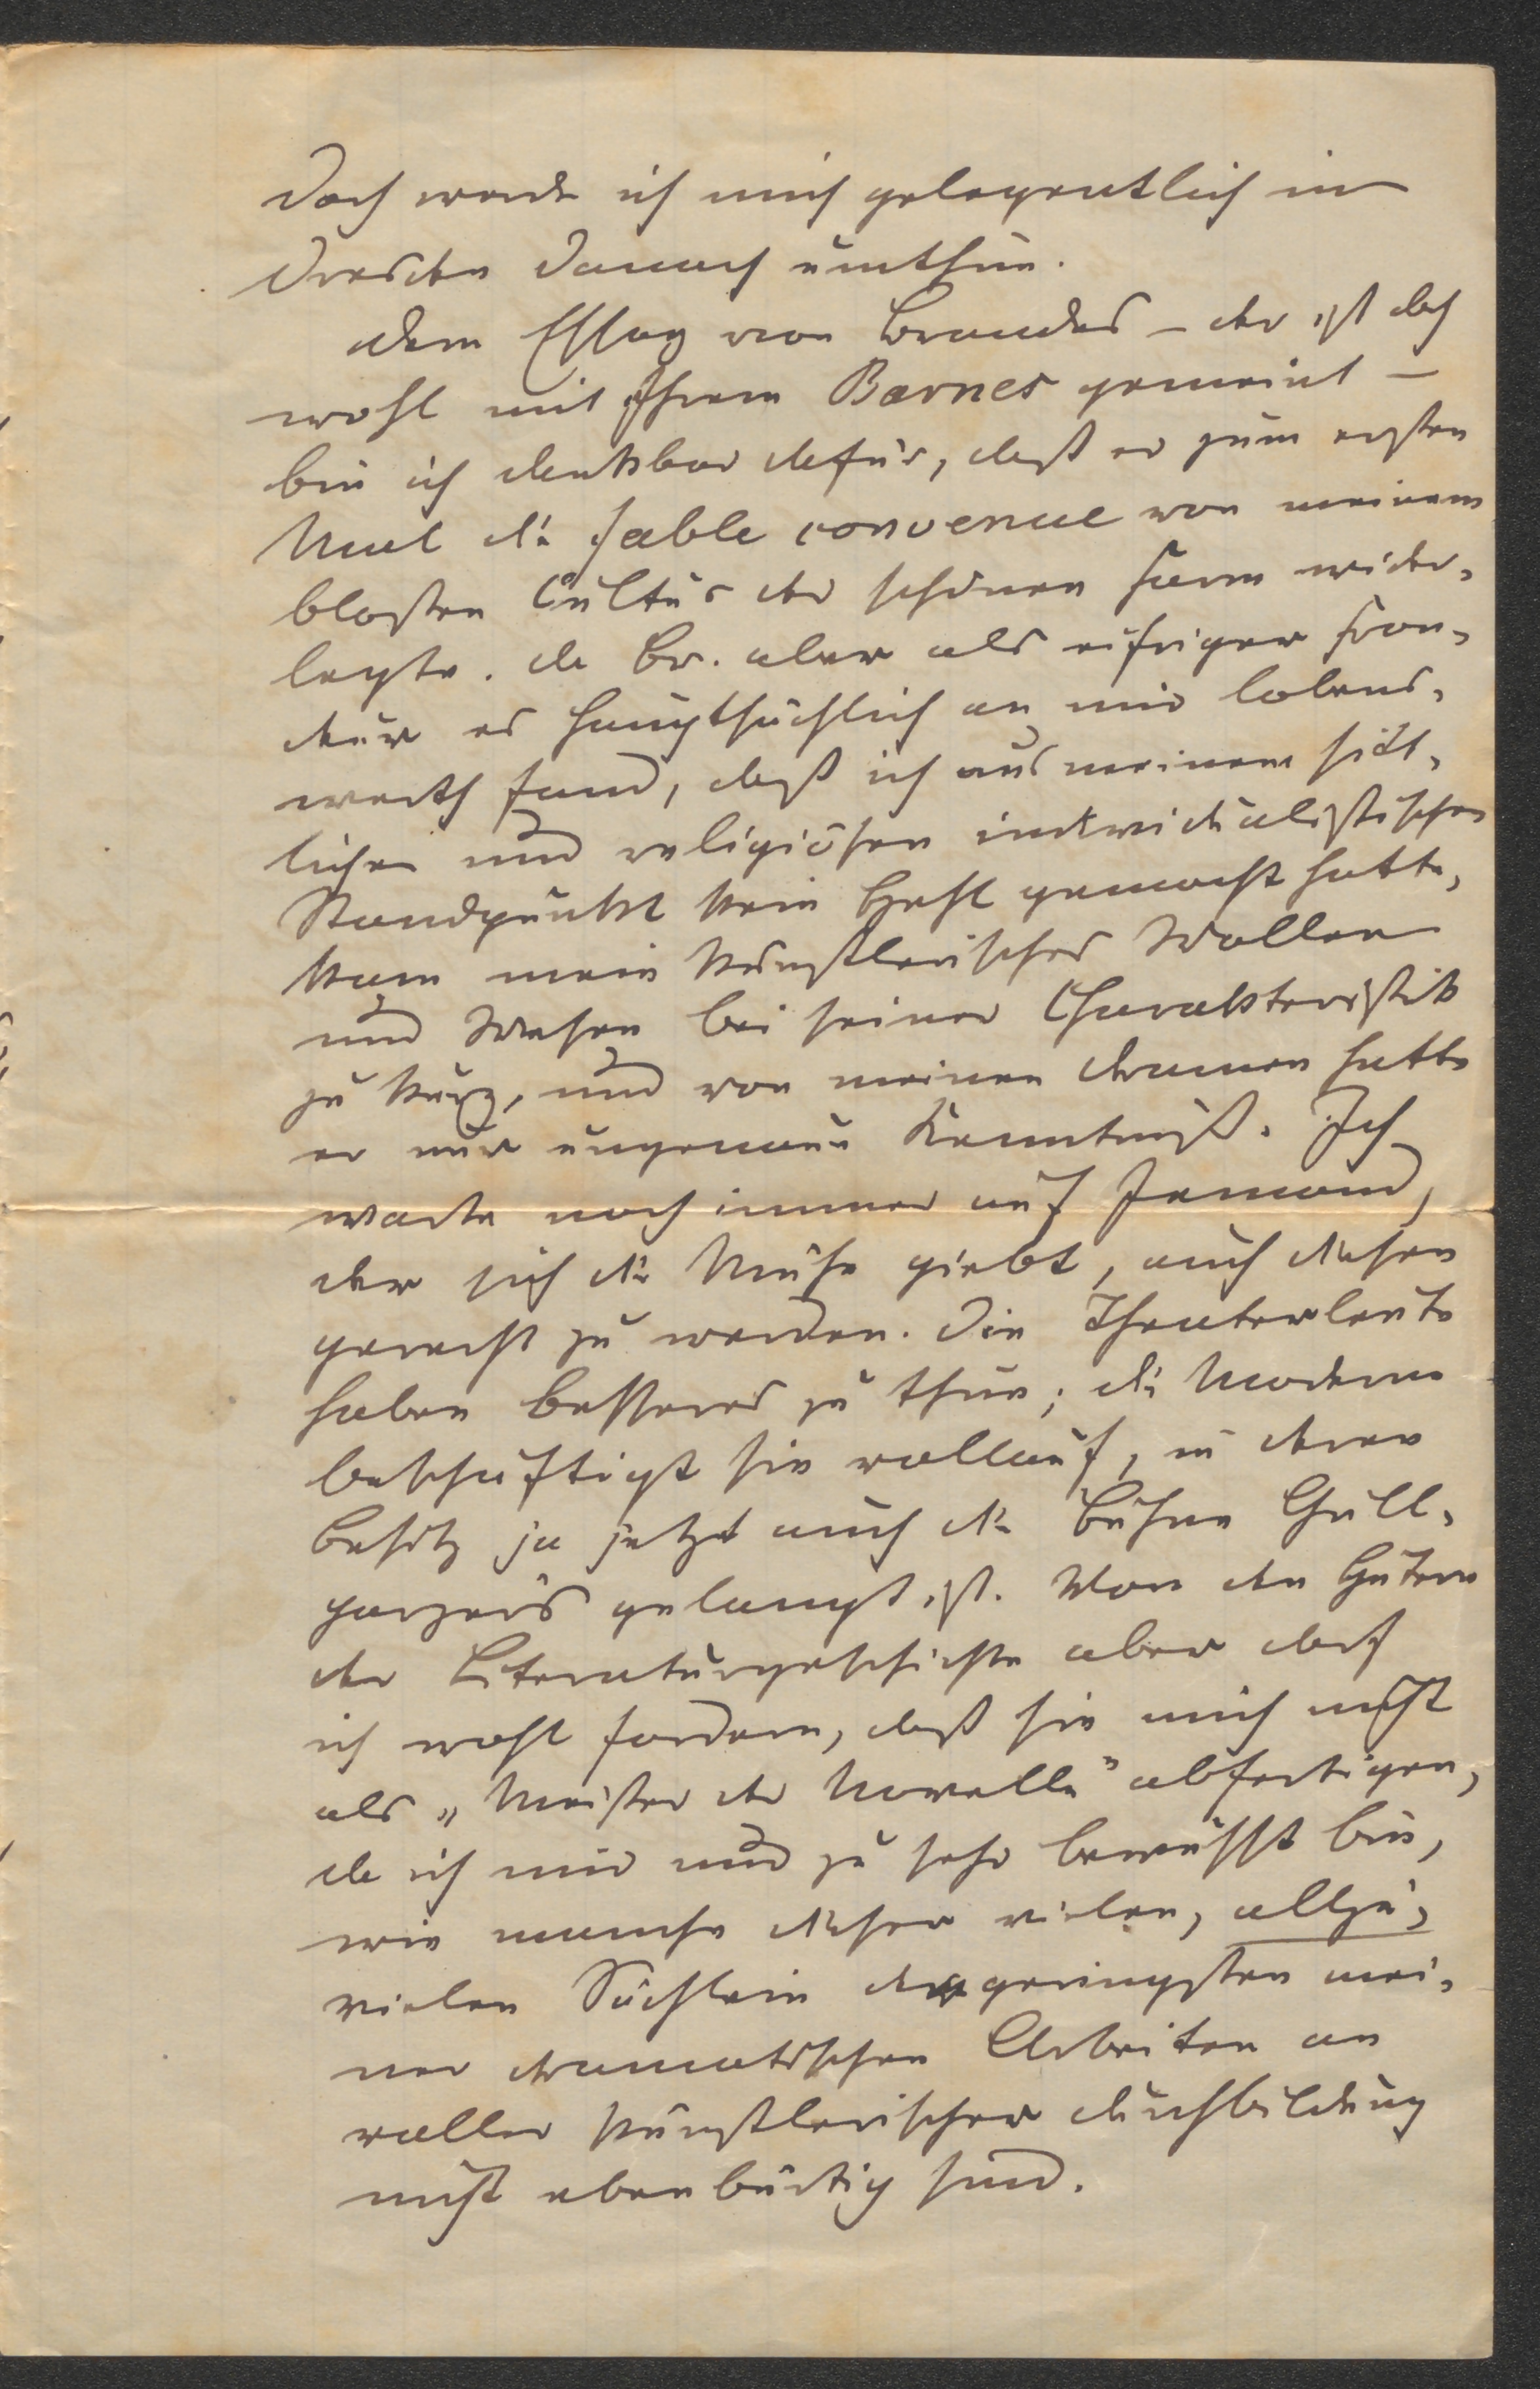 Doch werde ich mich gelegentlich in
Dresden danach umthun.
Dem Essay von Brandes – der ist doch
wohl mit Ihrem Barnes gemeint –
bin ich dankbar dafür, daß er zum ersten
Mal die fable convenue von meinem
bloßen Cultus der schönen Form wider-
legte. Da Br. aber als eifriger Fron-
deur es hauptsächlich an mir lobens-
werth fand, daß ich aus meinem sitt-
lichen und religiösen individualistischen
Standpunkt kein Hehl gemacht hatte,
kam mein künstlerisches Wollen
und Wesen bei seiner Charakteristik
zu kurz, und von meinen Dramen hatte
er nur ungenaue Kenntniß. Ich
warte noch immer auf Jemand,
der sich die Mühe giebt, auch diesen
gerecht zu werden. Die Theaterleute
haben Besseres zu thun; die Moderne
beschäftigt sie vollauf, in deren
Besitz ja jetzt auch die Bühne Grill-
parzers gelangt ist. Von den Hütern
der Literaturgeschichte aber darf
ich wohl fordern, daß sie mich nicht
als „Meister der Novelle" abfertigen,
da ich mir nur zu sehr bewusst bin,
wie manche dieser vielen, allzu-
vielen Sächlein der geringsten mei-
ner dramatischen Arbeiten an
voller künstlerischer Durchbildung
nicht ebenbürtig sind.